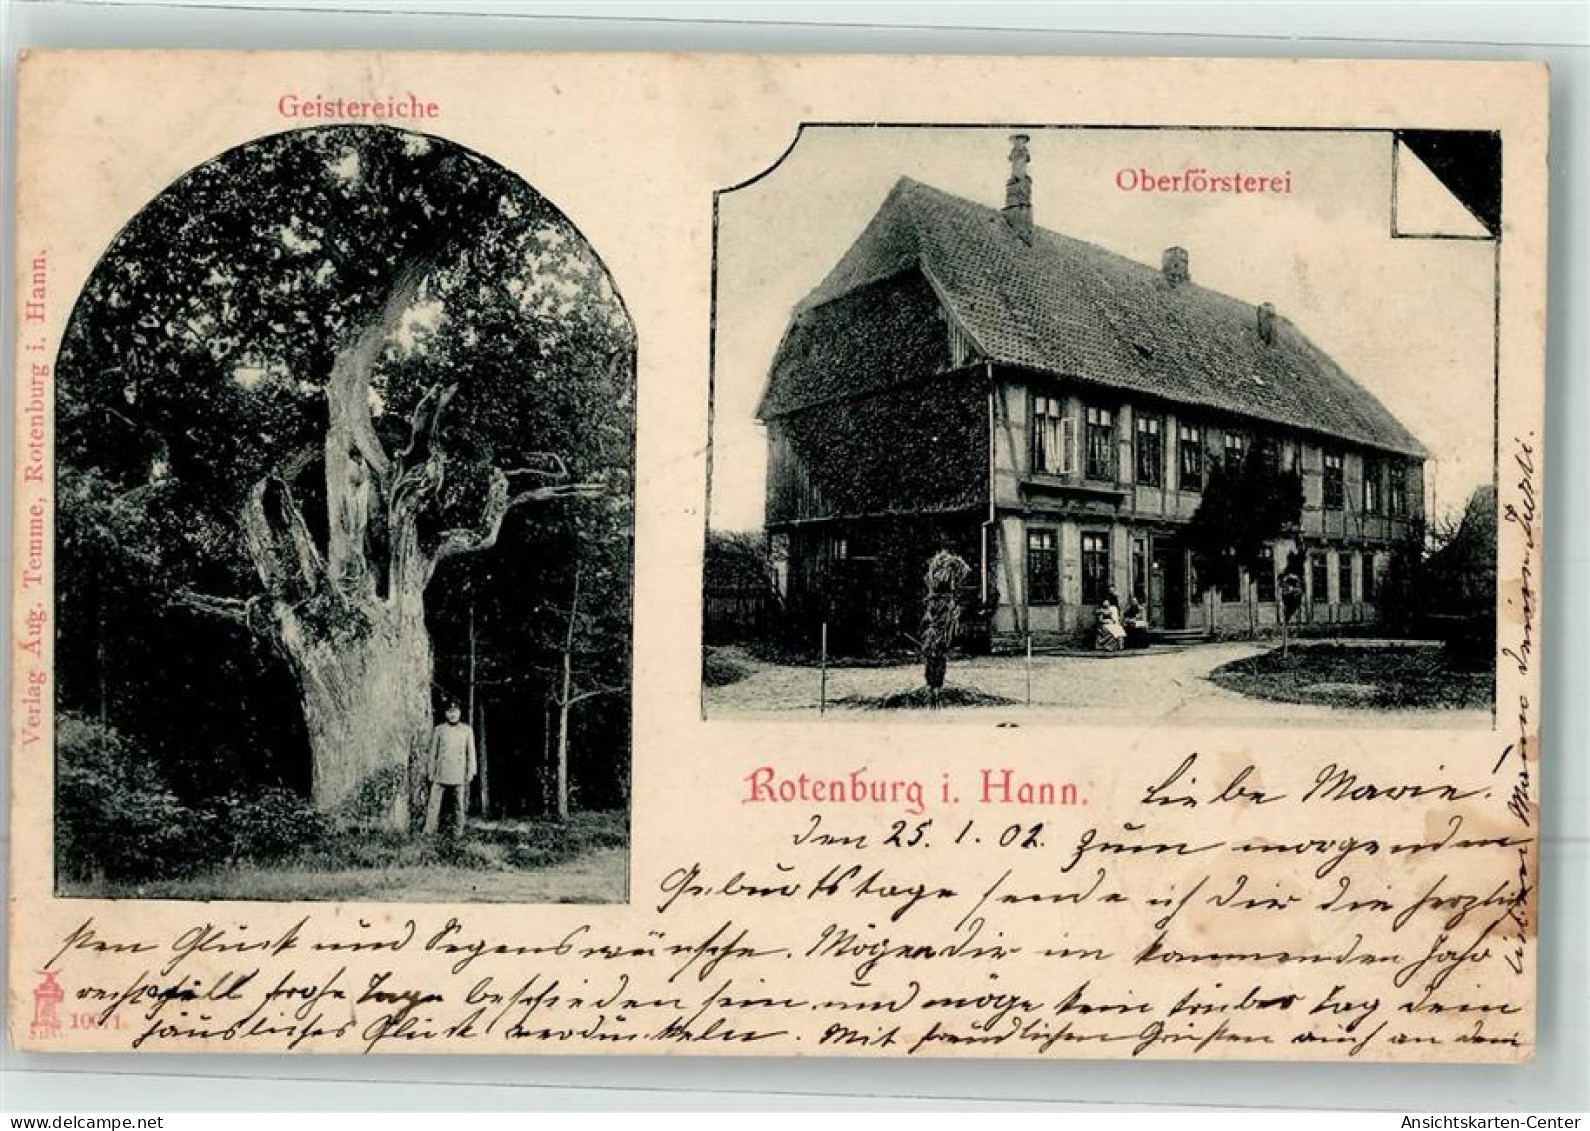 Geistereiche
Oberförsterei
Verlag Aug. Temme, Rotenburg i. Hann.
Rotenburg i. Hann.
Liebe Marie!
den 25. 1. 02. Zum morgenden
Geburtstage sende ich Dir die herzlich
sten Glück und Segenswünsche. Mögen Dir im kommenden Jahr
recht viel frohe Tage beschieden sein und möge kein trüber Tag Dein
häusliches Glück verdunkeln. Mit freundlichen Grüßen auch an Dein
lieben Mann Deine
10071.
44123376 / 27236 Rotenburg , Wuemme
Ansichtskarten-Center